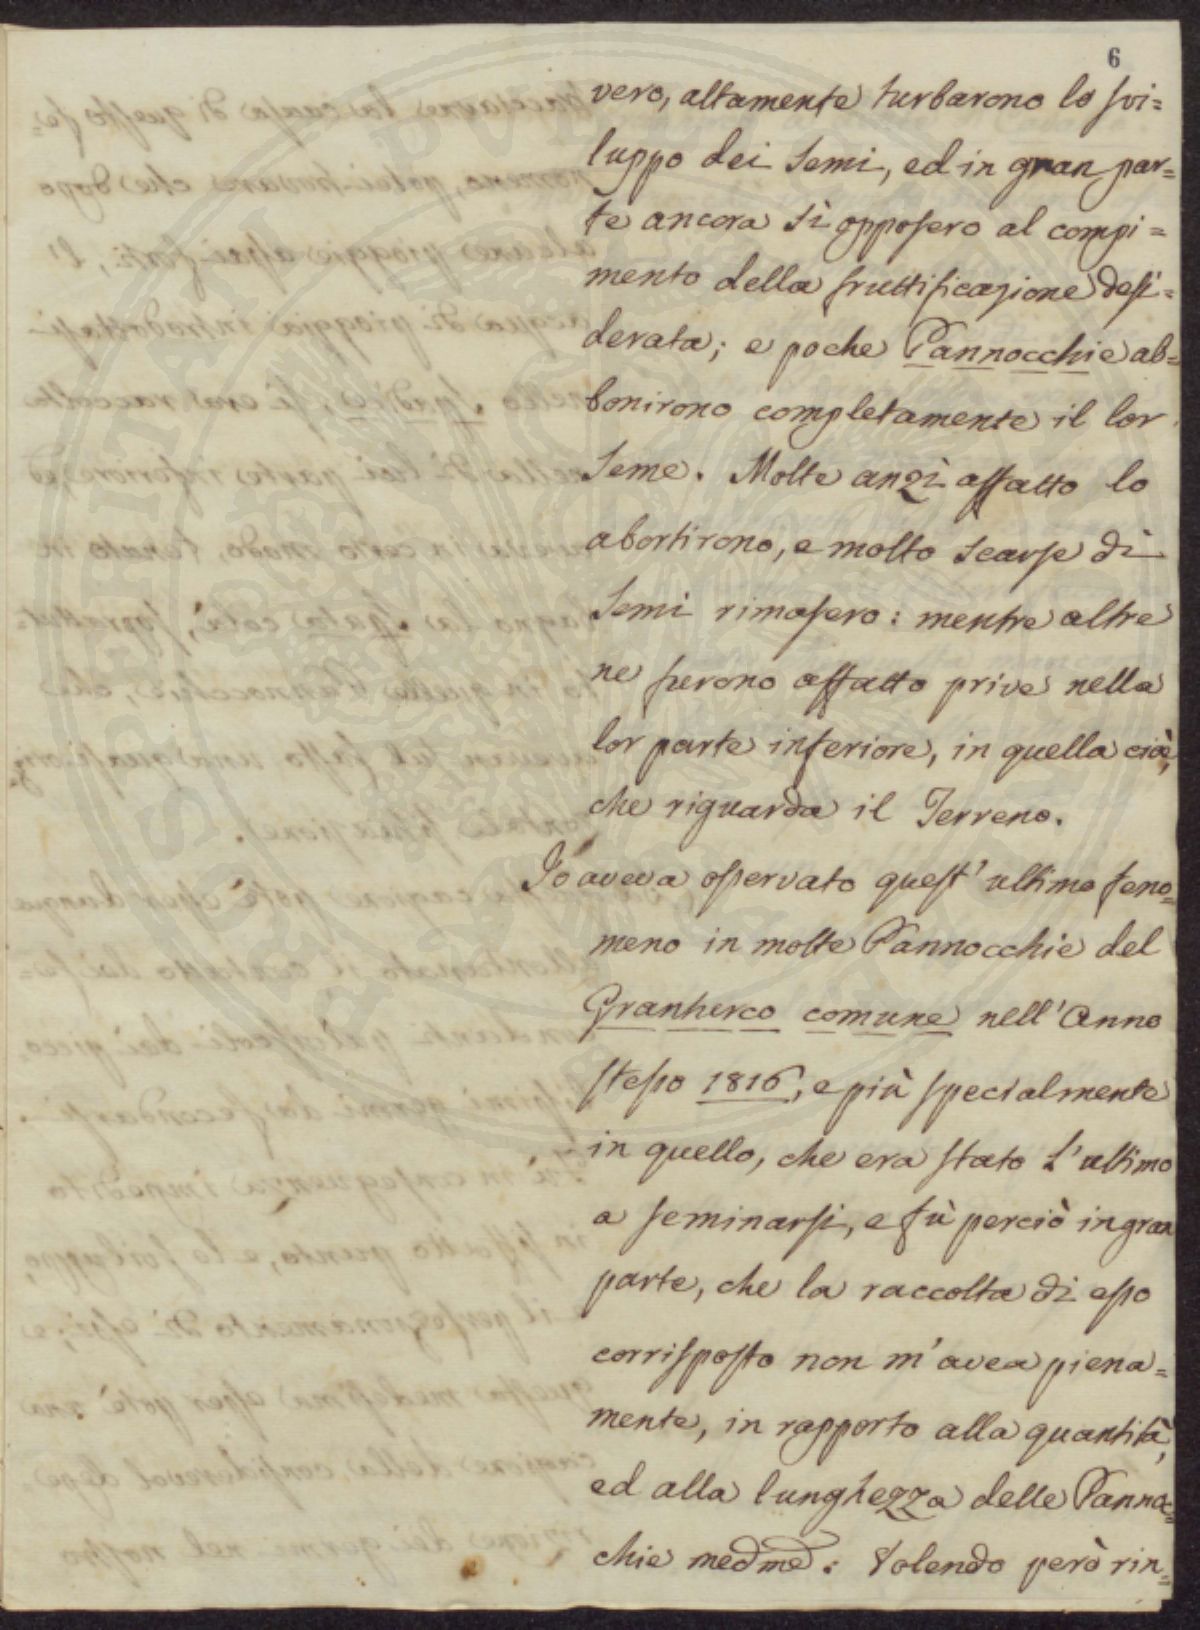 6
vero, altamente turbarono lo svi=
luppo dei Semi, ed in gran par=
te ancora si opposero al compi=
mento della fruttificazione desi=
derata; e poche Pannocchie ab=
bonirono completamente il lor
Seme. Molte anzi affatto lo
abortirono, e molto scarse di
Semi rimasero: mentre altre
ne furono affatto prive nella
lor parte inferiore, in quella cioè,
che riguarda il Terreno.
Io aveva osservato quest' ultimo feno=
meno in molte Pannocchie del
Granturco comune nell' Anno
stesso 1816, e più specialmente
in quello, che era stato l' ultimo
a seminarsi, e fù perciò in gran
parte, che la raccolta di esso
corrisposto non m' avea piena=
mente, in rapporto alla quantità,
ed alla lunghezza delle Panno=
chie medme. Volendo però rin=